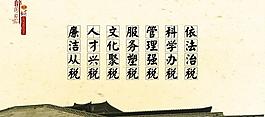 依法治税
科学办税
管理强税
服务塑税
文化聚税
人才兴税
廉洁从税